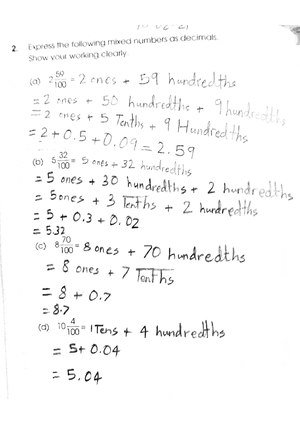 2. Express the following mixed numbers as decimals.
Show your working clearly.
(a) 2 59/100 = 2 ones + 59 hundredths
= 2 ones + 50 hundredths + 9 hundredths
= 2 ones + 5 Tenths + 9 Hundredths
= 2 + 0.5 + 0.09 = 2.59
(b) 5 32/100 = 5 ones + 32 hundredths
= 5 ones + 30 hundredths + 2 hundredths
= 5 ones + 3 Tenths + 2 hundredths
= 5 + 0.3 + 0.02
= 5.32
(c) 8 70/100 = 8 ones + 70 hundredths
= 8 ones + 7 Tenths
= 8 + 0.7
= 8.7
(d) 10 4/100 = 1 Tens + 4 hundredths
= 5 + 0.04
= 5.04